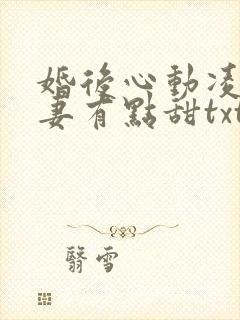 婚後心動凌
妻有點甜txt
翳雪